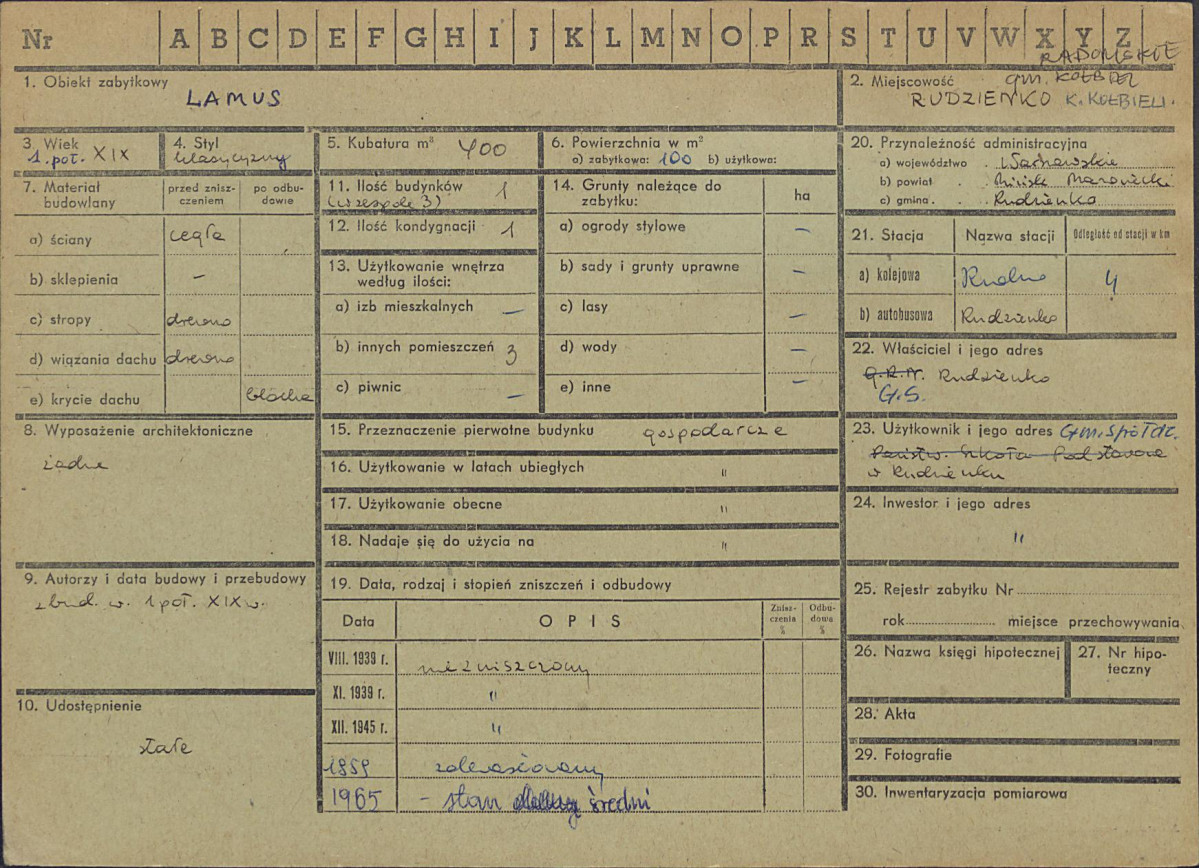 Nr A B C D E F G H I J K L M N O P R S T U V W X Y Z
RADOMSKIE
1. Obiekt zabytkowy
LAMUS
2. Miejscowość gm. KOŁBIEL
RUDZIENKO K. KOŁBIELI.
3. Wiek
1. poł. XIX
4. Styl
klasycyzny
5. Kubatura m³ 400
6. Powierzchnia w m²
a) zabytkowa: 100 b) użytkowa:
7. Materiał budowlany
przed znisz-
czeniem
po odbu-
dowie
a) ściany cegła
b) sklepienia –
c) stropy drewno
d) wiązania dachu drewno
e) krycie dachu blacha
8. Wyposażenie architektoniczne
żadne
9. Autorzy i data budowy i przebudowy
zbud. w. 1 poł. XIX w.
10. Udostępnienie
stałe
11. Ilość budynków 1
(w zespole 3)
12. Ilość kondygnacji 1
13. Użytkowanie wnętrza
według ilości:
a) izb mieszkalnych –
b) innych pomieszczeń 3
c) piwnic –
14. Grunty należące do
zabytku:
ha
a) ogrody stylowe –
b) sady i grunty uprawne –
c) lasy –
d) wody –
e) inne –
15. Przeznaczenie pierwotne budynku gospodarcze
16. Użytkowanie w latach ubiegłych "
17. Użytkowanie obecne "
18. Nadaje się do użycia na "
19. Data, rodzaj i stopień zniszczeń i odbudowy
Data OPIS
Znisz-
czenia
%
Odbu-
dowa
%
VIII. 1939 r. niezniszczony
XI. 1939 r. "
XII. 1945 r. "
1959
1965 – stan średni
20. Przynależność administracyjna
a) województwo . Warszawskie
b) powiat . . Mińsk Mazowiecki
c) gmina . . Rudzienko
21. Stacja Nazwa stacji Odległość od stacji w km
a) kolejowa Rudno 4
b) autobusowa Rudzienko
22. Właściciel i jego adres
G.R.N. Rudzienko
G.S.
23. Użytkownik i jego adres Gm. Spółdz.
Państw. Szkoła Podstawowa
w Rudzienku
24. Inwestor i jego adres
"
25. Rejestr zabytku Nr
rok miejsce przechowywania
26. Nazwa księgi hipotecznej
27. Nr hipo-
teczny
28. Akta
29. Fotografie
30. Inwentaryzacja pomiarowa